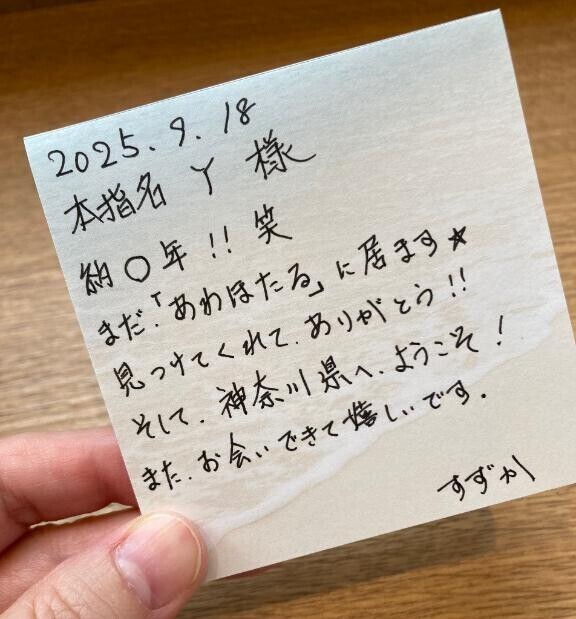 2025.9.18
本指名 Y 様
約〇年!! 笑
まだ.「あわほたる」に居ます★
見つけてくれて.ありがとう!!
そして.神奈川県へ.ようこそ!
また.お会いできて嬉しいです.
すずか